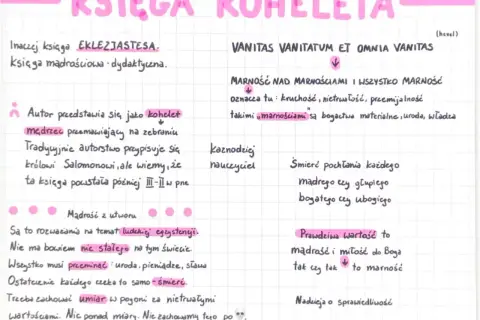 KSIĘGA KOHELETA
Inaczej księga EKLEZJASTESA.
księga mądrościowa - dydaktyczna.
Autor przedstawia się jako kohelet
mędrzec przemawiający na zebraniu
Tradycyjnie autorstwo przypisuje się
królowi Salomonowi, ale wiemy, że
ta księga powstała później III-II w pne
kaznodziej
nauczyciel
Mądrość z utworu
Są to rozważania na temat ludzkiej egzystencji.
Nie ma bowiem nic stałego na tym świecie.
Wszystko musi przeminąć - uroda, pieniądze, sława
Ostatecznie każdego czeka to samo - śmierć.
Trzeba zachować umiar w pogoni za nietrwałymi
wartościami. Nic ponad miarę. Nie zachowamy tego po 💀.
(hevel)
VANITAS VANITATUM ET OMNIA VANITAS
MARNOŚĆ NAD MARNOŚCIAMI I WSZYSTKO MARNOŚĆ
oznacza tu: kruchość, nietrwałość, przemijalność
takimi „marnościami" są bogactwa materialne, uroda, władza
Śmierć pochłania każdego
mądrego czy głupiego
bogatego czy ubogiego
Prawdziwa wartość to
mądrość i miłość do Boga
tak czy tak to marność
Nadzieja o sprawiedliwość